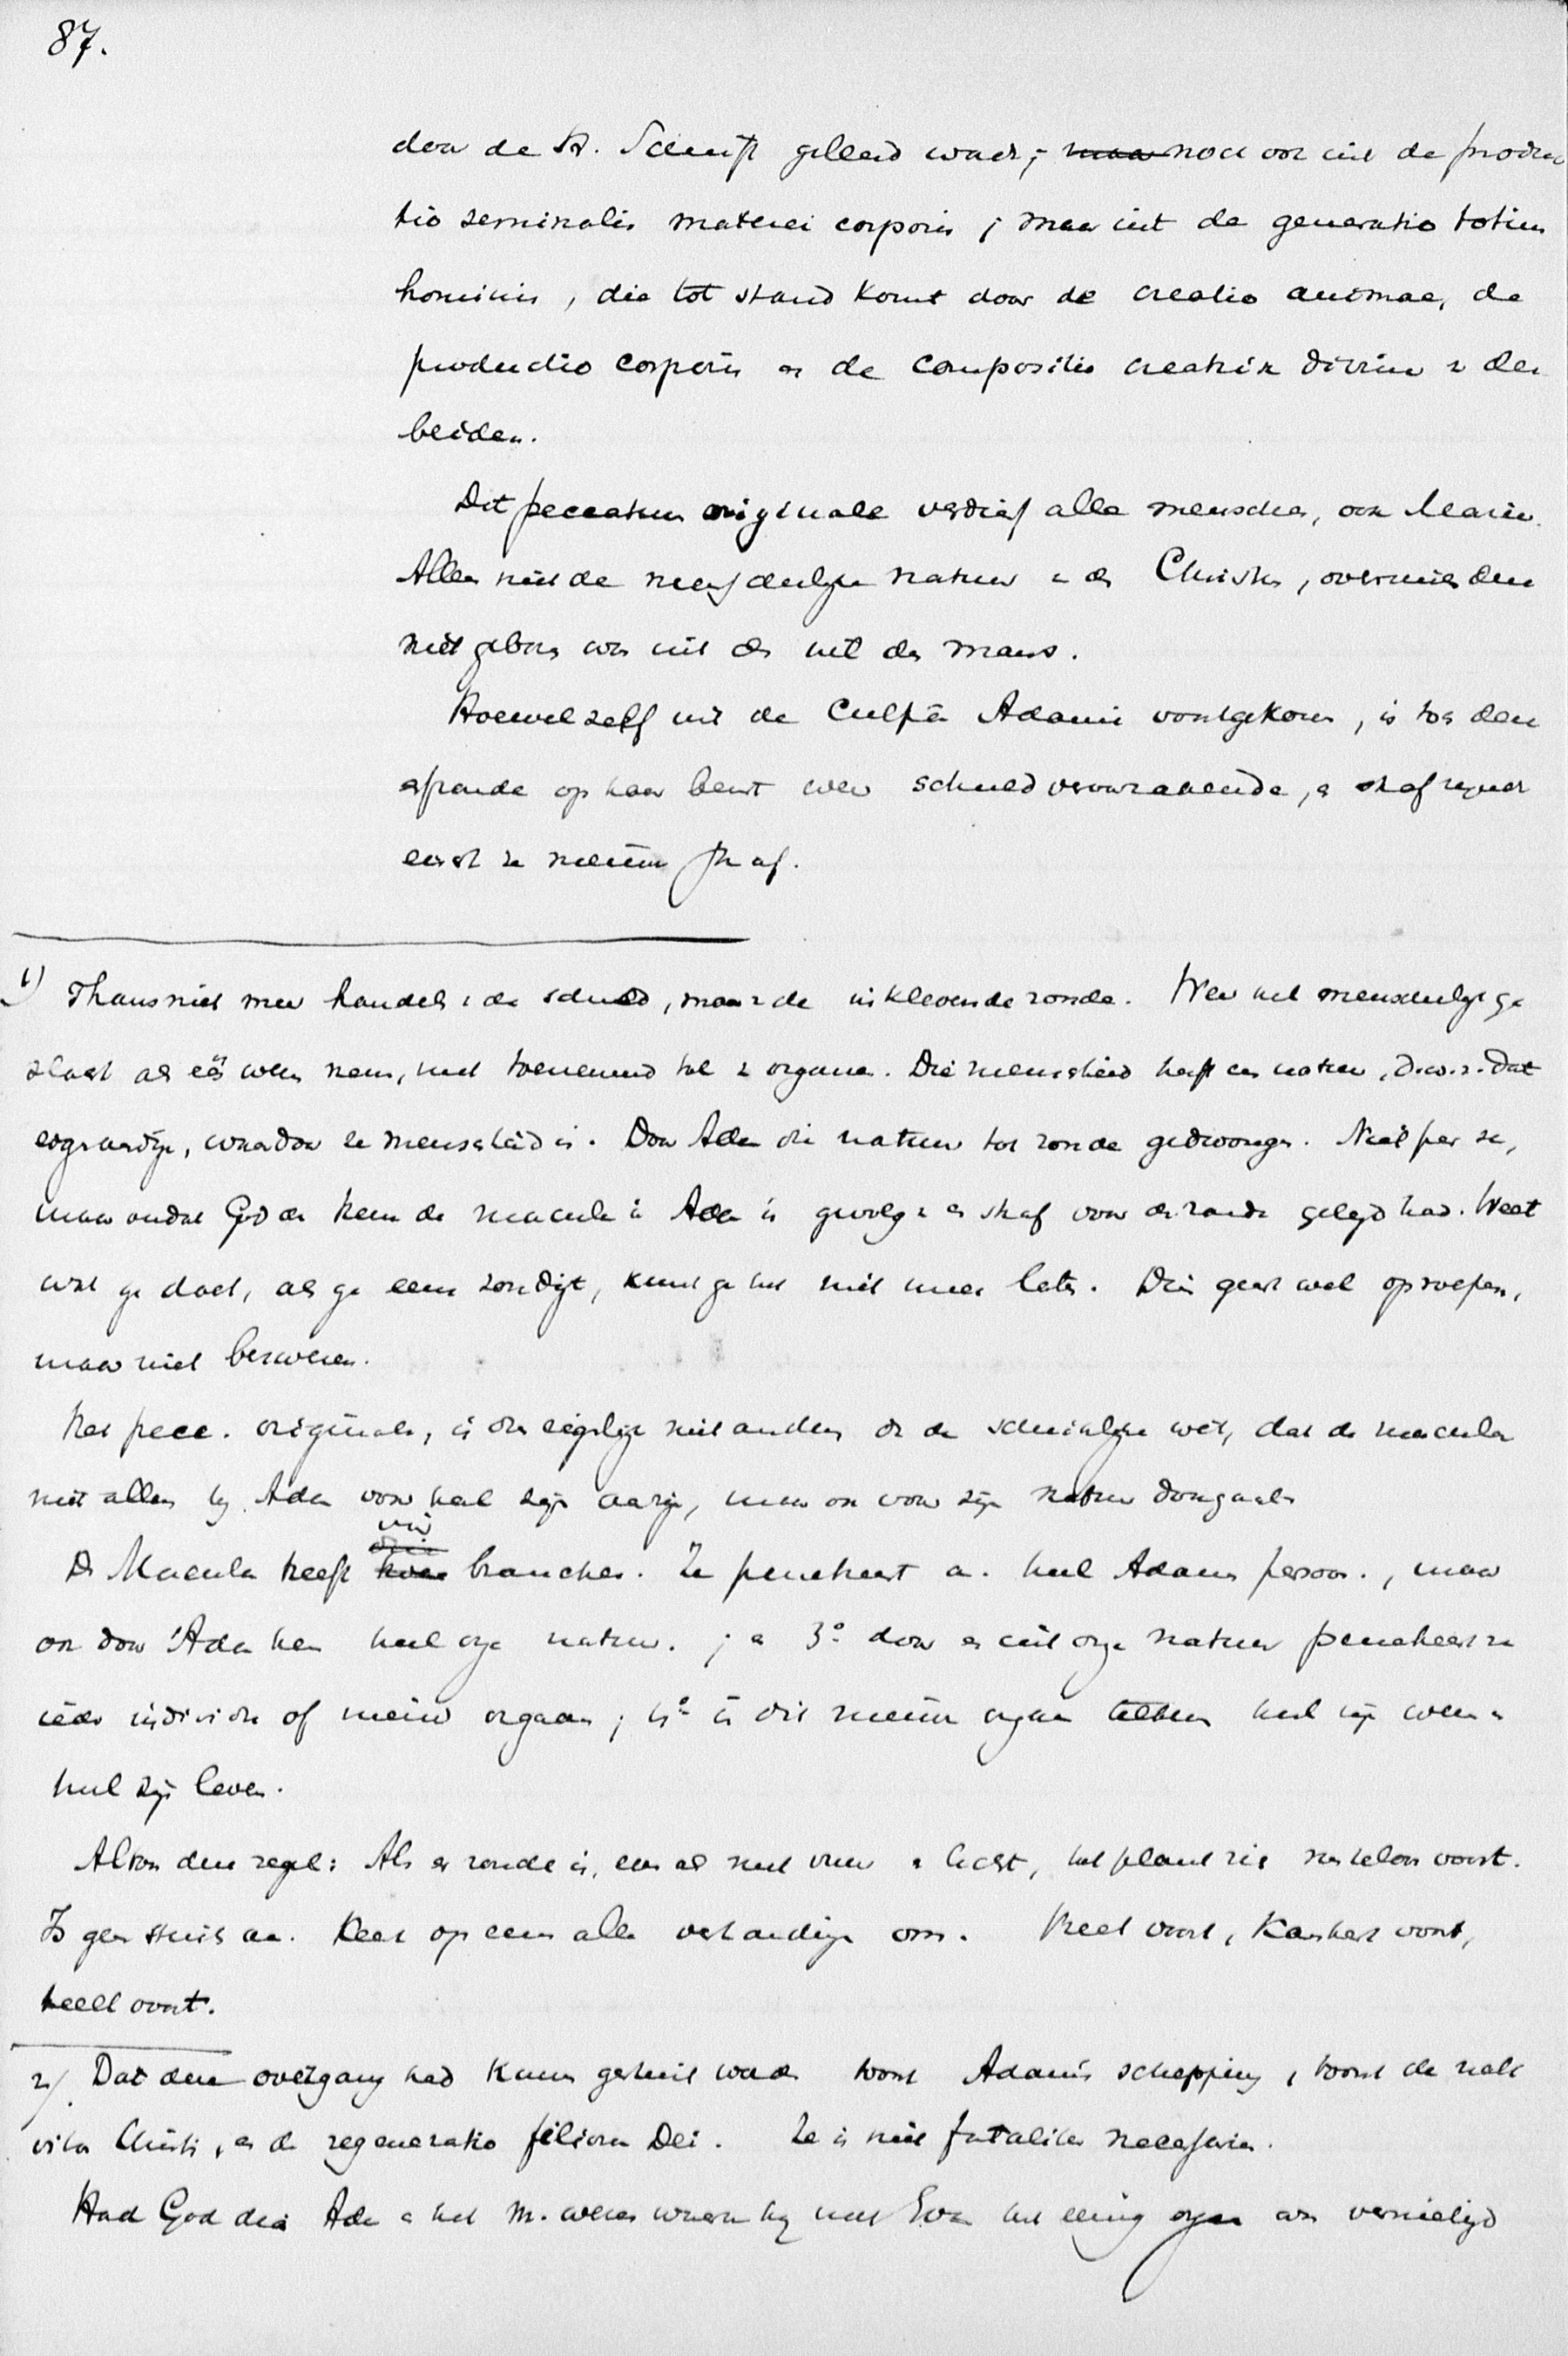 87.
door de H. Schrift geleerd wordt; maar noch ook uit de produc
tio seminalis materiei corporis; maar uit de generatio totius
hominis, die tot stand komt door de creatio animae, de
productio corporis en de compositio creatrix divina der
beiden.
Dit peccatum originale verdierf alle menschen, ook Maria.
Alleen niet de menschelijke natuur in den Christus, overmits deze
niet geboren was uit den wil des mans.
Hoewel zelf uit de culpa Adami voortgekomen, is toch deze
op haar beurt weer schuld veroorzakende, en straf
eischt ze nieuwe straf.
1) Thans niet meer handelt de schuld, maar de inklevende zonde. Weer het menschelijk ge
slacht als één wezen nemen, met toenemend tal organen. Die menschheid heeft een natuur, d.w.z. dat
eigenaardige, waardoor ze menschheid is. Door Adam die natuur tot zonde gedwongen. Niet per se,
maar omdat God de Heer de macula in Adam als gevolg en straf voor de zonde gelegd had. Weet
wat ge doet, als ge eens zondigt, kunt ge het niet meer laten. Die geest wel oproepen,
maar niet bezweren.
Het pecc. originale, is dus eigenlijk niet anders dan de wet, dat de macula
niet alleen bij Adam voor heel zijn aanzijn, maar ook voor zijn natuur doorgaat
De Macula heeft vier branches. Ze penetreert a. heel Adams persoon, maar
ook door Adam heen heel onze natuur; en 3° door en uit onze natuur penetreert ze
ieder individu of nieuw orgaan; 4° in dit nieuwe orgaan telkens heel zijn wezen en
heel zijn leven.
Alzoo deze regel: Als er zonde is, en als met vuur, het plant zich voort.
Is geen stuit aan. Keert op eens alle verhouding om. Vreet voort, kankert voort,
teelt voort.
2) Dat deze overgang had kunnen gestuit worden toont Adams schepping, toont de nati
vitas Christi, en de regeneratio filiorum Dei. Ze is niet fataliter necessaria.
Had God die Adam en het m. wezen waarin hij met Eva het eenig orgaan was vernietigd